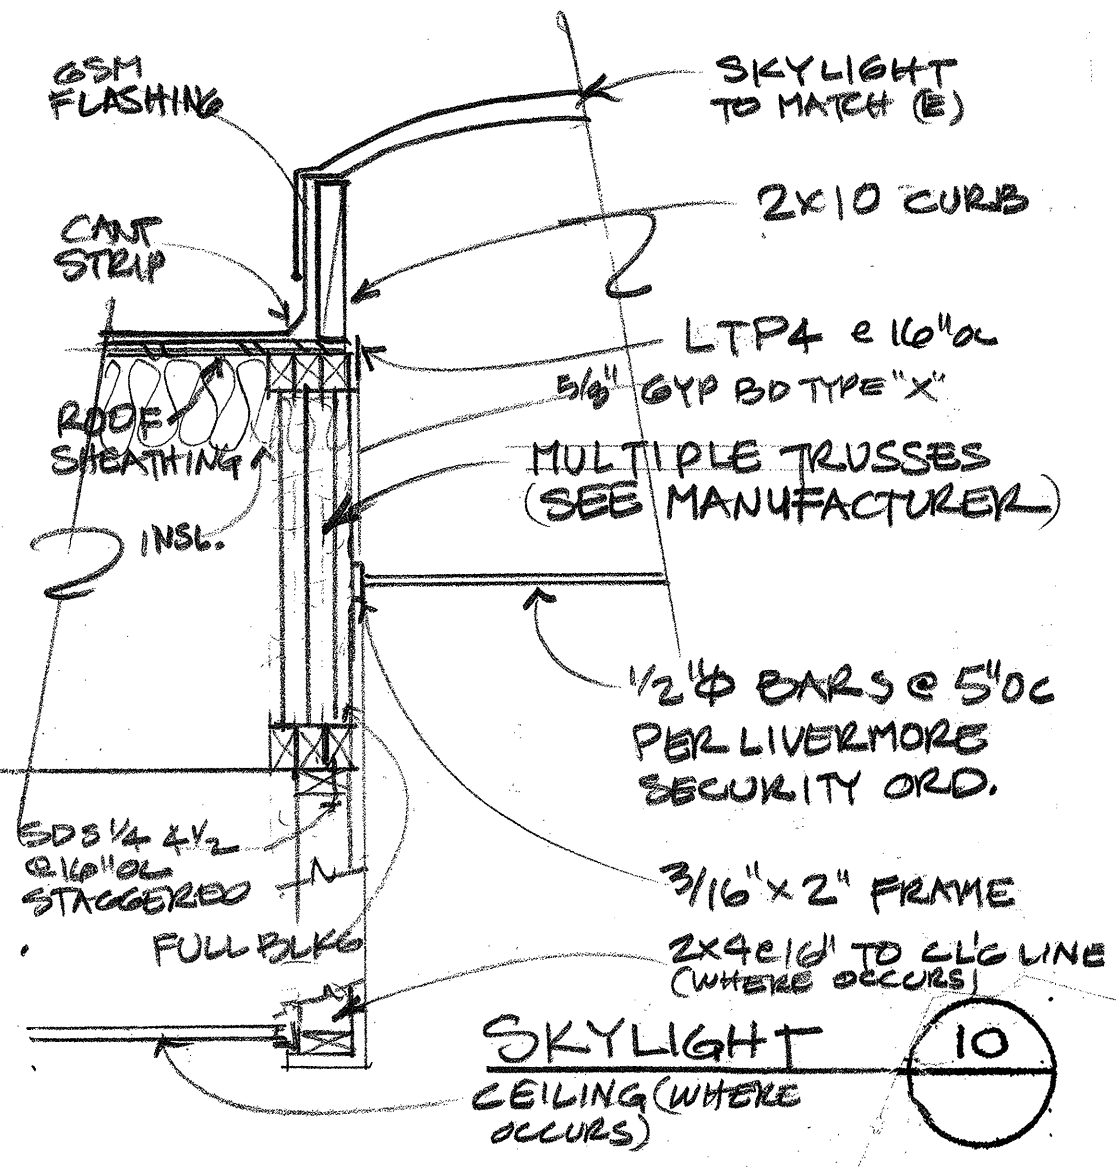 GSM
FLASHING
SKYLIGHT
TO MATCH (E)
2x10 CURB
CANT
STRIP
LTP4 @ 16"OC
5/8" GYP BD TYPE "X"
ROOF
SHEATHING
MULTIPLE TRUSSES
(SEE MANUFACTURER)
INSL.
1/2"Φ BARS @ 5"OC
PER LIVERMORE
SECURITY ORD.
SDS 1/4 x 4 1/2
@ 16"OC
STAGGERED
3/16" x 2" FRAME
FULL BLKG
2x4 @ 16" TO CL'G LINE
(WHERE OCCURS)
SKYLIGHT
10
CEILING (WHERE
OCCURS)